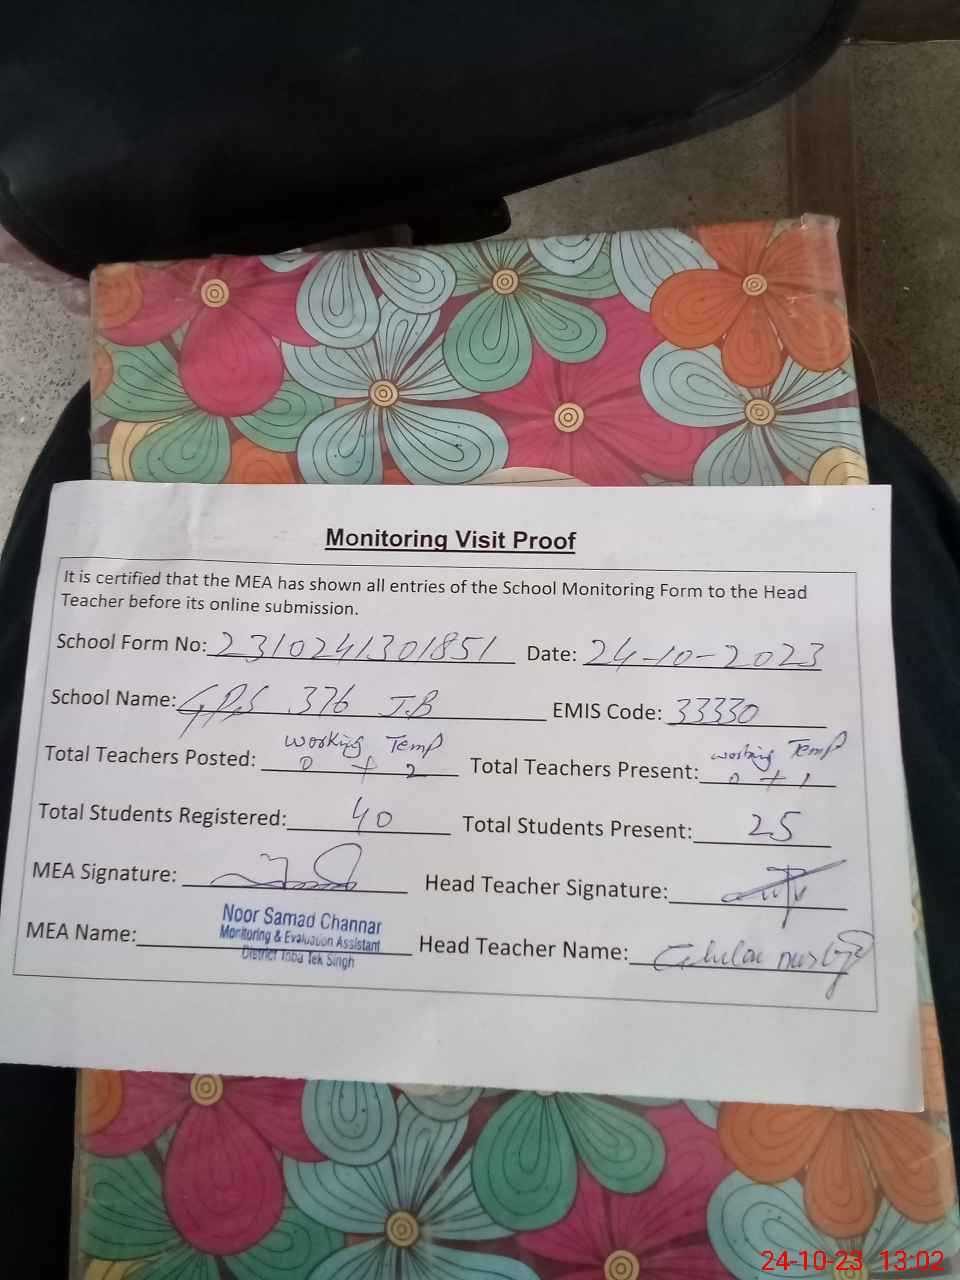 Monitoring Visit Proof
It is certified that the MEA has shown all entries of the School Monitoring Form to the Head
Teacher before its online submission.
School Form No: 2310241301851 Date: 24-10-2023
School Name: GPS 376 J.B EMIS Code: 33330
Total Teachers Posted: working 0 + Temp 2 Total Teachers Present: working 0 + Temp 1
Total Students Registered: 40 Total Students Present: 25
MEA Signature: Head Teacher Signature:
MEA Name: Noor Samad Channar Head Teacher Name:
Monitoring & Evaluation Assistant
District Toba Tek Singh
24-10-23 13:02